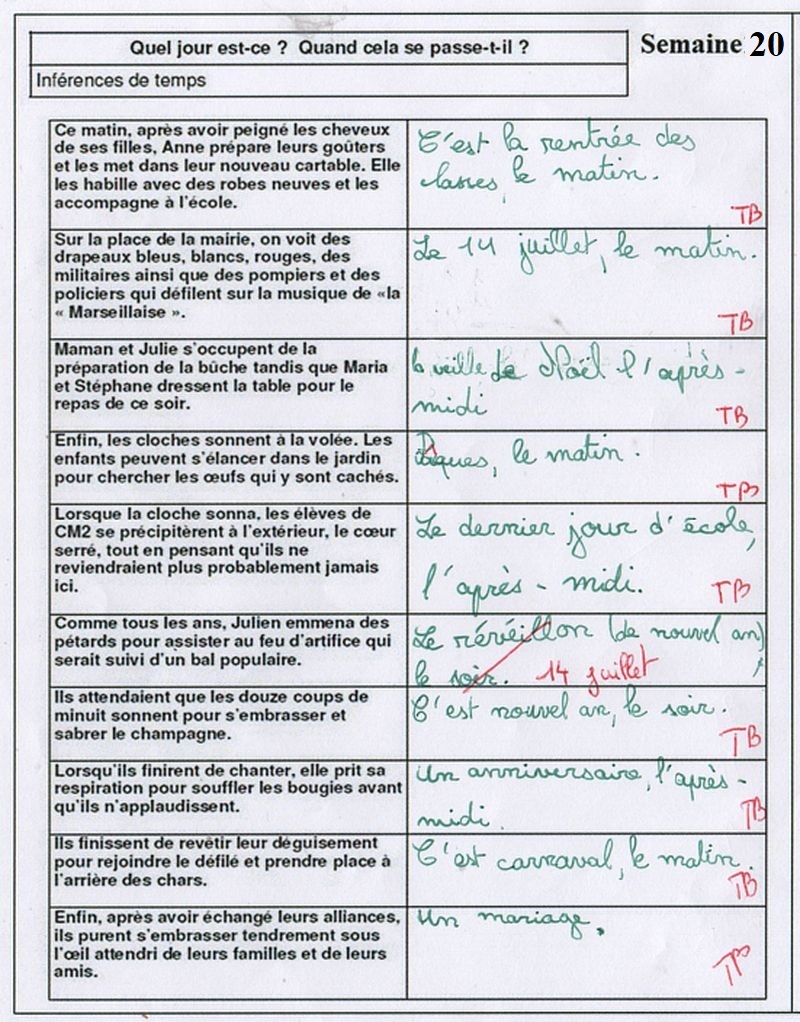 Quel jour est-ce ? Quand cela se passe-t-il ?
Semaine 20
Inférences de temps
Ce matin, après avoir peigné les cheveux
de ses filles, Anne prépare leurs goûters
et les met dans leur nouveau cartable. Elle
les habille avec des robes neuves et les
accompagne à l'école.
C'est la rentrée des
classes, le matin.
TB
Sur la place de la mairie, on voit des
drapeaux bleus, blancs, rouges, des
militaires ainsi que des pompiers et des
policiers qui défilent sur la musique de «la
« Marseillaise ».
Le 14 juillet, le matin.
TB
Maman et Julie s'occupent de la
préparation de la bûche tandis que Maria
et Stéphane dressent la table pour le
repas de ce soir.
la veille de Noël l'après-
midi
TB
Enfin, les cloches sonnent à la volée. Les
enfants peuvent s'élancer dans le jardin
pour chercher les œufs qui y sont cachés.
Pâques, le matin.
TB
Lorsque la cloche sonna, les élèves de
CM2 se précipitèrent à l'extérieur, le cœur
serré, tout en pensant qu'ils ne
reviendraient plus probablement jamais
ici.
Le dernier jour d'école,
l'après-midi.
TB
Comme tous les ans, Julien emmena des
pétards pour assister au feu d'artifice qui
serait suivi d'un bal populaire.
Le réveillon (de nouvel an)
le soir. 14 juillet
Ils attendaient que les douze coups de
minuit sonnent pour s'embrasser et
sabrer le champagne.
C'est nouvel an, le soir.
TB
Lorsqu'ils finirent de chanter, elle prit sa
respiration pour souffler les bougies avant
qu'ils n'applaudissent.
Un anniversaire, l'après-
midi.
TB
Ils finissent de revêtir leur déguisement
pour rejoindre le défilé et prendre place à
l'arrière des chars.
C'est carnaval, le matin.
TB
Enfin, après avoir échangé leurs alliances,
ils purent s'embrasser tendrement sous
l'œil attendri de leurs familles et de leurs
amis.
Un mariage.
TB